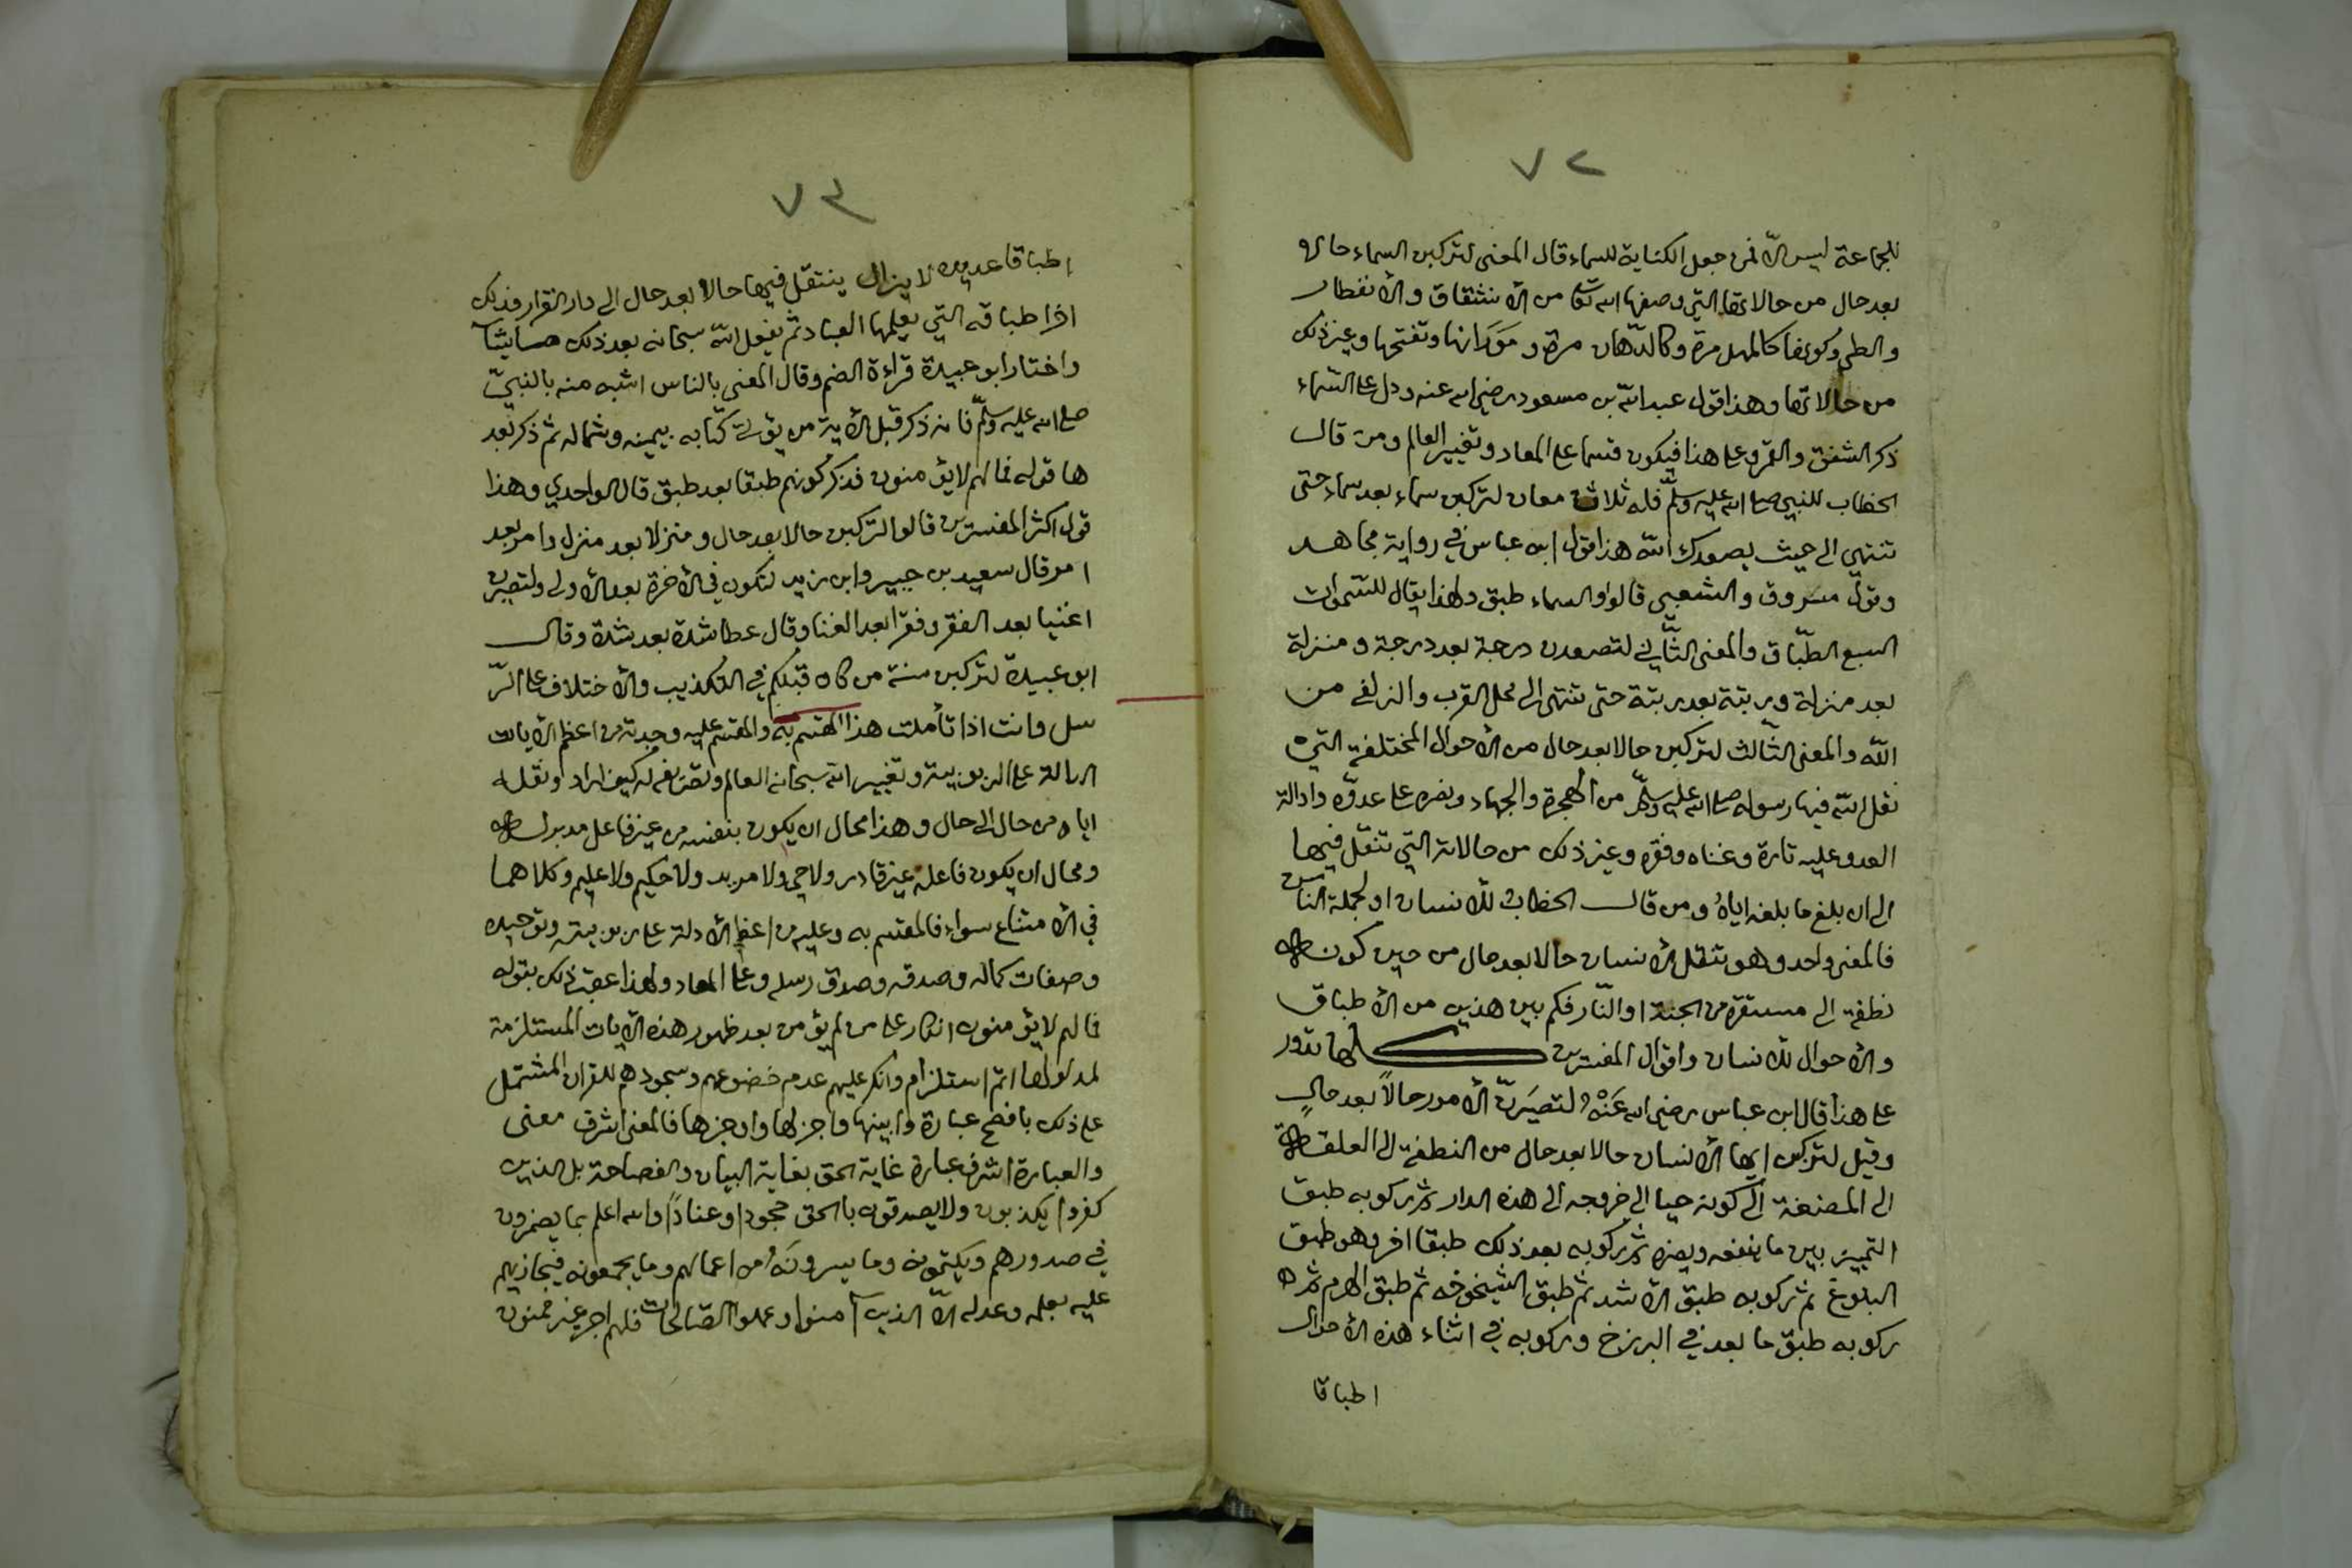 ٧٢
للجماعة ليس الّا فمن جعل الكناية للسماء قال المعنى لتركبن السماء حالا
بعد حال من حالاتها التي وصفها الله تعا من الأنشقاق والأنفطار
والطى وكونها كالمهل مرة وكالدّهان مرة ومورانها وتفتحها وغير ذلك
من حالاتها وهذا قول عبدالله بن مسعود رضي الله عنه ودل على السّماء
ذكر الشفق والقمر وعلى هذا فيكون قسما على المعاد وتغيير العالم ومن قال
الخطاب للنبي صلى الله عليه وسلّم فله ثلاث معان لتركبن سماء بعد سماء حتى
تنتهي الى حيث يصعدك الله هذا قول ابن عباس في رواية مجاهد
وقول مسروق والشعبي قالوا والسماء طبق ولهذا يقال للسّموات
السبع الطّباق والمعنى الثّاني لتصعدن درجة بعد درجة ومنزلة
بعد منزلة ورتبة بعد رتبة حتى تنتهي الى محل القرب والزلفى من
اللّه والمعنى الثّالث لتركبن حالا بعد حال من الأحوال المختلفة التي
نقل الله فيها رسوله صلى الله عليه وسلّم من الهجرة والجهاد ونصره على عدوّه وادالة
العدو عليه تارة وغناه وفقره وغير ذلك من حالاته التي تنقّل فيها
الى ان بلغ ما بلغه اياهُ ومن قال الخطاب للأنسان او لجملة النّاس
فالمعنى واحد وهو تنقل الأنسان حالا بعد حال من حين كونه
نطفة الى مستقره من الجنة او النّار فكم بين هذين من الأطباق
والأحوال للأنسان واقوال المفسرين كلها تدور
على هذا قال ابن عباس رضي الله عَنْهُ لتصيَرنّ الأمور حالاً بعد حالٍ
وقيل لتركبن ايها الأنسان حالا بعد حال من النطفة الى العلقة
الى المضغة الى كونه حيا الى خروجه الى هذه الدار ثم ركوبه طبق
التمييز بين ما ينفعه ويضره ثم ركوبه بعد ذلك طبقا اخر وهو طبق
البلوغ ثم ركوبه طبق الأشد ثم طبق الشيخوخه ثم طبق الهرم ثم
ركوبه طبق ما بعد في البرزخ وركوبه في اثناء هذه الأحوال
اطباقا
٧٣
اطباقا عديدة لا يزال ينتقّل فيها حالا بعد حال الى دار القرار فذلك
اخر اطباقه التي يعلمها العباد ثم يفعل الله سبحانه بعد ذلك ما يشآ
واختار ابو عبيدة قراءة الضم وقال المعنى بالناس اشبه منه بالنبيّ
صلى الله عليه وسلّم فانه ذكر قبل الأية من يؤتى كتابه بيمينه وشماله ثم ذكر بعد
ها قوله فما لهم لا يؤمنون فذكر كونهم طبقا بعد طبق قال الواحدي وهذا
قول اكثر المفسرين قالوا لتركبن حالا بعد حال ومنزلا بعد منزل وامر بعد
امر قال سعيد بن جبير وابن زيد لتكون في الأخرة بعد الأولى ولتصيرن
اغنيا بعد الفقر وفقرا بعد الغنا وقال عطا شدة بعد شدة وقال
ابو عبيدة لتركبن سنة من كان قبلكم في التكذيب والأختلاف على الرّ
سل وانت اذا تأملت هذا المقسم به والمقسم عليه وجدته من اعظم الأيات
الدالة على الربوبية وتغيير الله سبحانه العالم وتصريفه له كيف اراد ونقله
اياه من حال الى حال وهذا محال ان يكون بنفسه من غير فاعل مدبر له
ومحال ان يكون فاعله غير قادر ولا حي ولا مريد ولا حكيم ولا عليم وكلاهما
في الأمتناع سواء فالمقسم به وعليه من اعظم الأدلة على ربوبيته وتوحيده
وصفات كماله وصدقه وصدق رسله وعلى المعاد ولهذا عقب ذلك بقوله
فما لهم لا يؤمنون انكار على من لم يؤمن بعد ظهور هذه الأيات المستلزمة
لمدلولها اتم استلزام وانكر عليهم عدم خضوعهم وسجودهم للقران المشتمل
على ذلك بافصح عبارة وابينها واجزلها واوجزها فالمعنى اشرف معنى
والعبارة اشرف عبارة غاية الحق بغاية البيان والفصاحة بل الذين
كفروا يكذبون ولا يصدقون بالحق جحودا وعناداً والله اعلم بما يضمرون
في صدورهم ويكتمونه وما يسرونَهُ من اعمالهم وما يجمعونه فيجازيهم
عليه بعلمه وعدله الّا الذين آمنوا وعملوا الصّالحات فلهم اجر غير ممنون